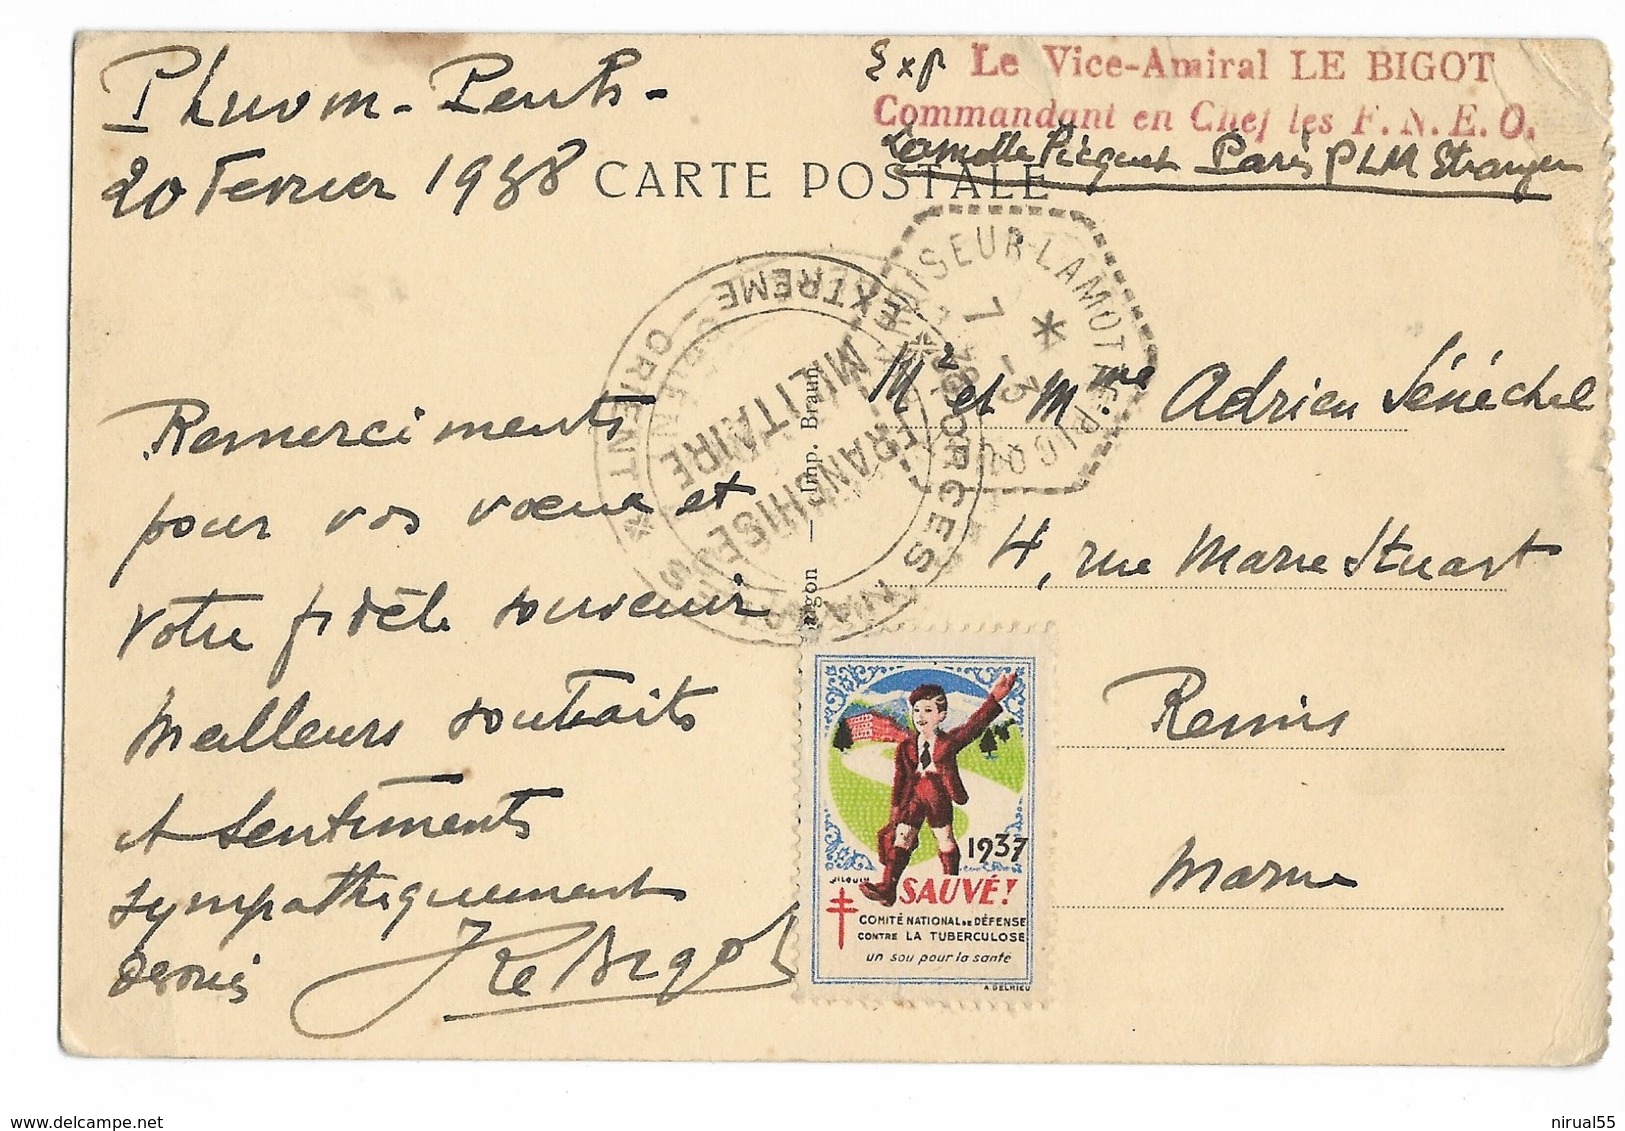 Phnom-Penh-
20 Fevrier 1938
Exp Le Vice-Amiral LE BIGOT
Commandant en Chef les F.N.E.O.
Lamotte Picquet Paris PLM Etranger
CARTE POSTALE
FORCES NAVALES EXTREME-ORIENT
FRANCHISE
MILITAIRE
CROISEUR-LAMOTTE-PICQUET
7 -3
38
Imp. Braun
Mr et Mme Adrien Sénéchal
4, rue Marie Stuart
Reims
Marne
Remerciments
pour vos voeux et
votre fidèle souvenir
Meilleurs souhaits
et sentiments
sympathiquement
J Le Bigot
1937
SAUVÉ!
COMITÉ NATIONAL DE DÉFENSE
CONTRE LA TUBERCULOSE
un sou pour la santé
A. DELRIEU
nirual55